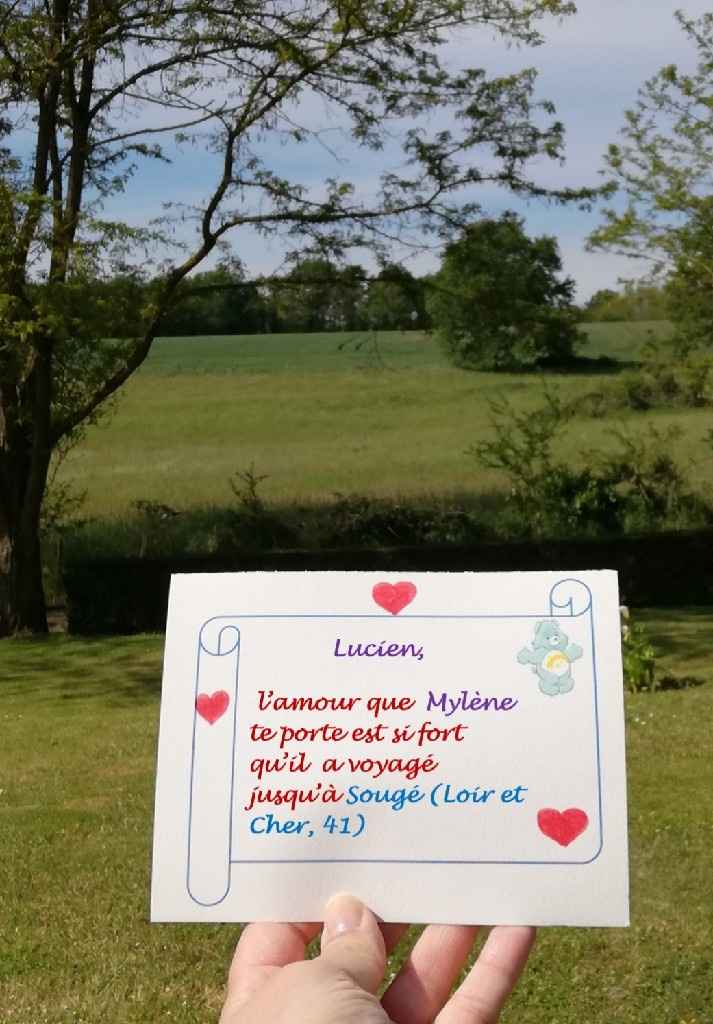 Lucien,
l'amour que Mylène
te porte est si fort
qu'il a voyagé
jusqu'à Sougé (Loir et
Cher, 41)